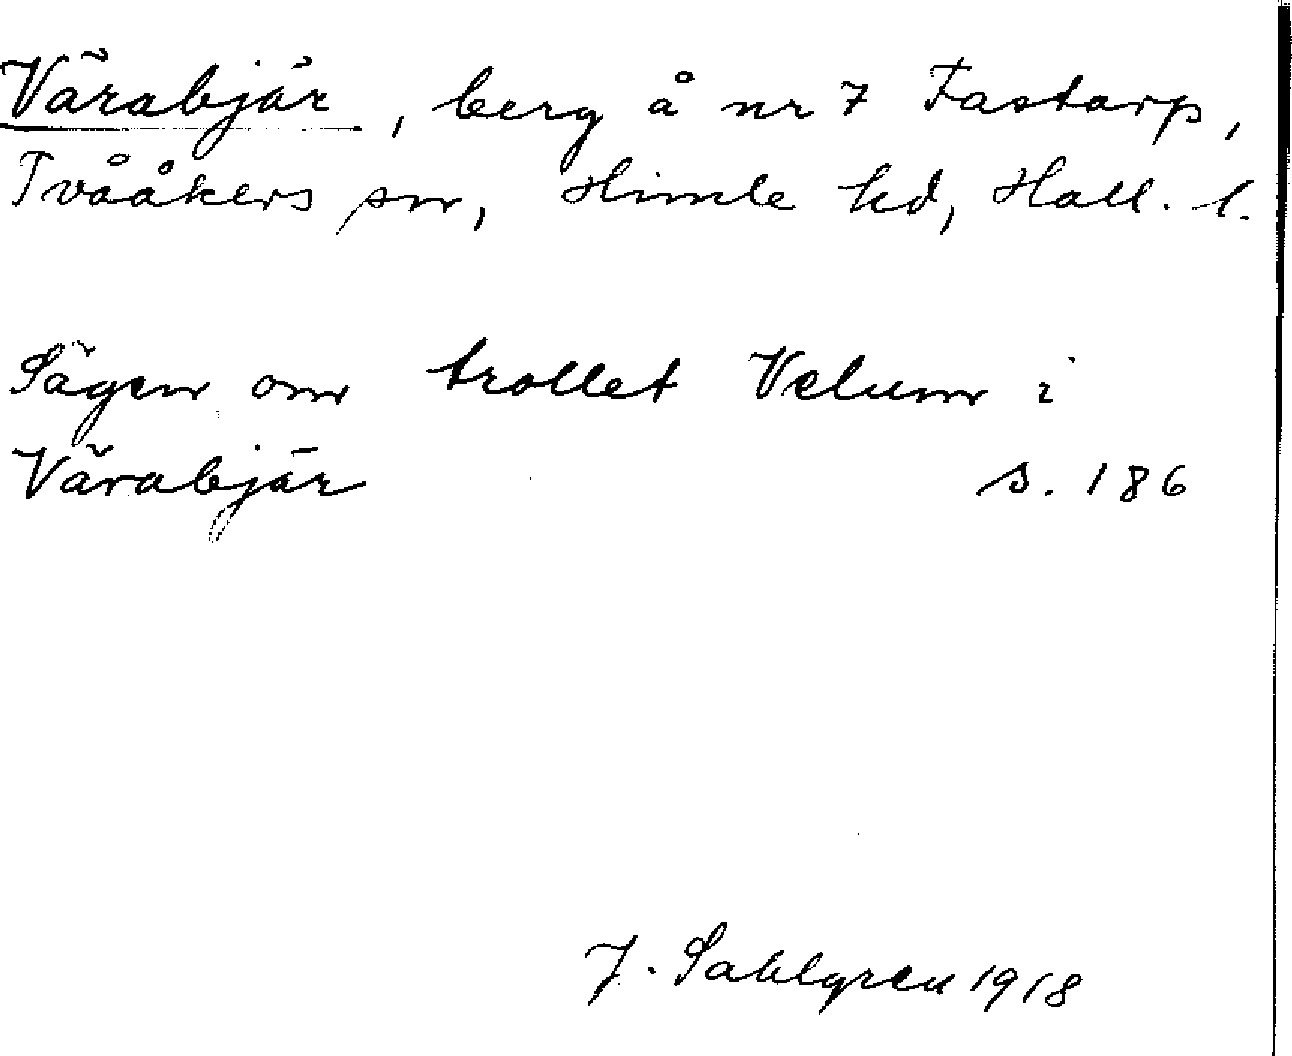 Värabjär, berg å nr 7 Fastarp,
Tvååkers sn, Himle hd, Hall. l.
Sägen om trollet Velum i
Värabjär s. 186
J. Sahlgren 1918